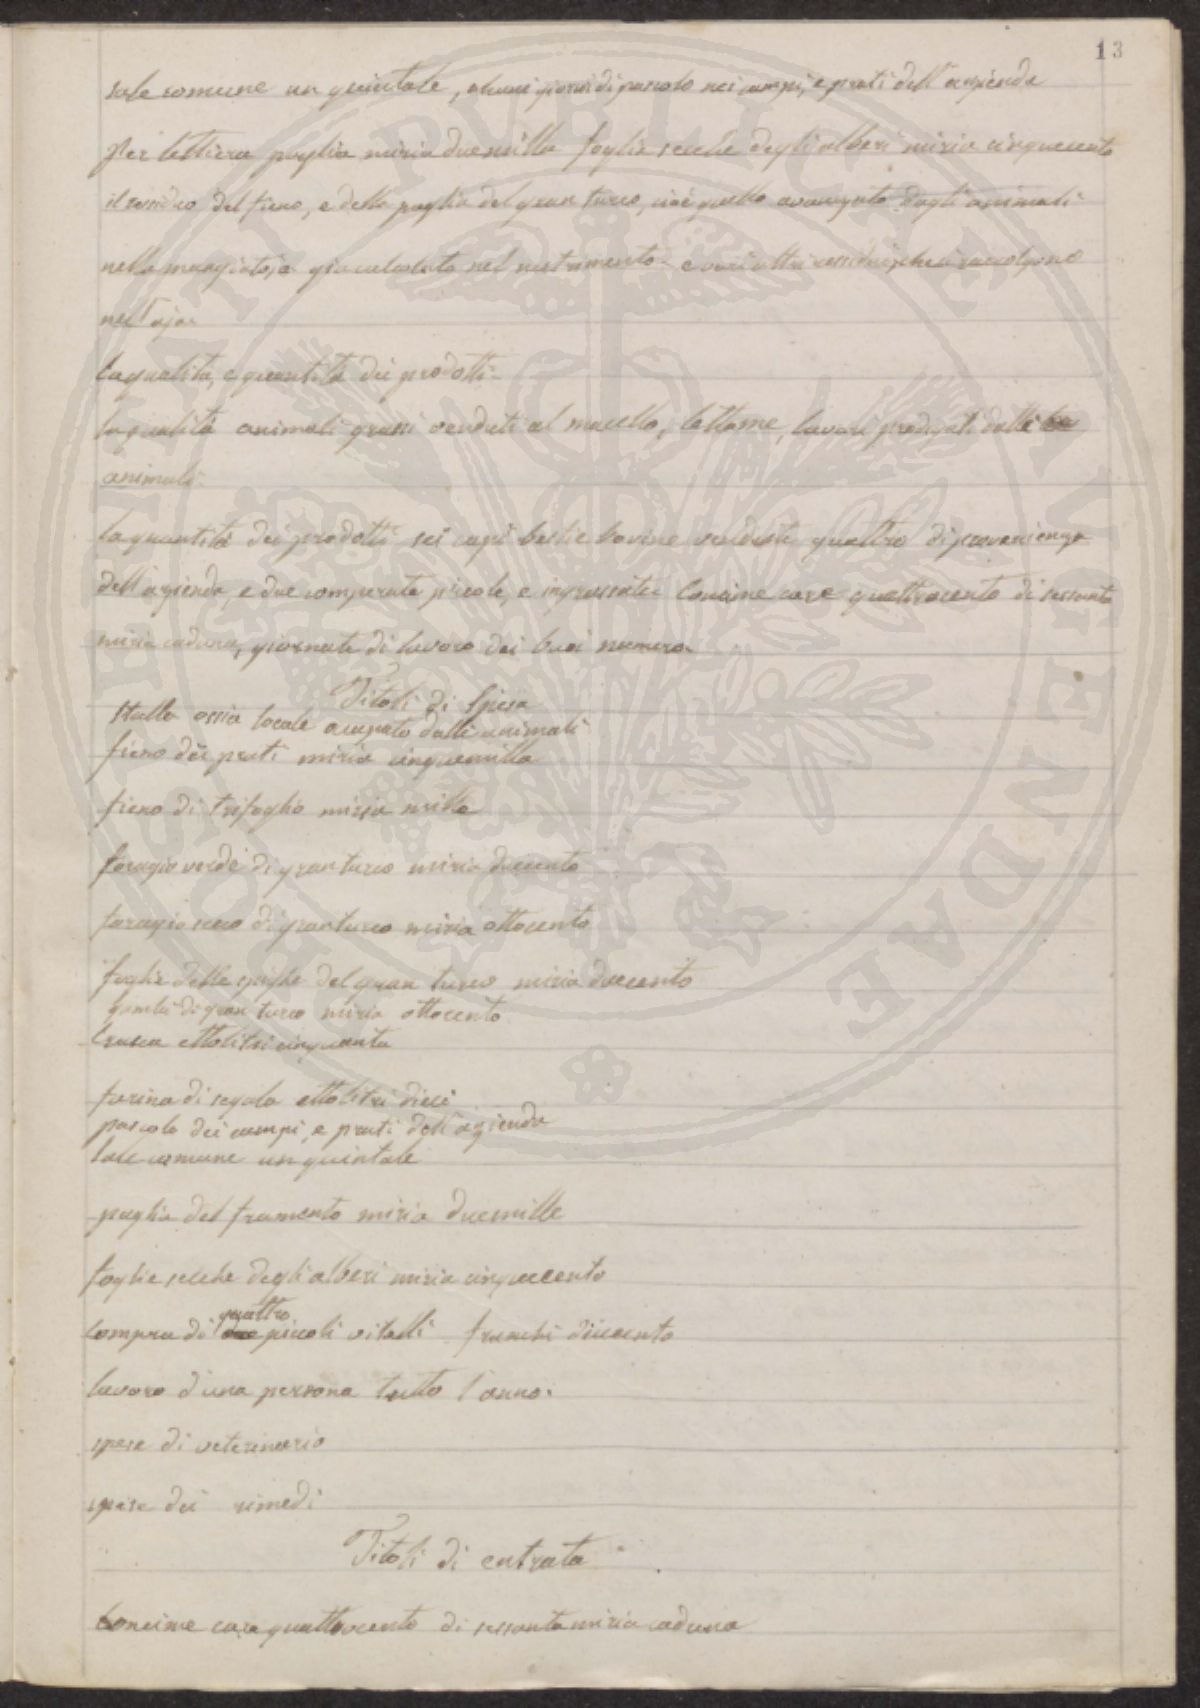 13
sale comune un quintale, alcuni giorni di pascolo nei campi, e prati dell'azienda
Per lettiera paglia miria duemilla foglie secche degli alberi miria cinquecento
il residuo del fieno, e della paglia del gran turco, cioè quello avanzato dagli animali
nella mangiatoja gia calcolato nel nutrimento e vari altri residui, che si raccolgono
nell'aja
La qualità, e quantità dei prodotti
la qualità animali grassi venduti al macello, lettame, lavori prodigati dalli
animali
la quantità dei prodotti sei capi bestie bovine vendute quattro di provenienza
dell'azienda, e due comperate piccole, e ingrassate. Concime care quattrocento di sessanta
miria caduna, giornate di lavoro dei buoi numero
Titoli di Spesa
Stalla ossia locale occupato dalli animali
fieno dei prati miria cinquemilla
fieno di trifoglio miria mille
foragio verde di gran turco miria duecento
foragio seco di gran turco miria ottocento
foglie delle spighe del gran turco miria duecento
gambi di gran turco miria ottocento
Crusca ettolitri cinquanta
farina di segala ettolitri dieci
pascolo dei campi, e prati dell'azienda
Sale comune un quintale
paglia del framento miria duemille
foglie secche degli alberi miria cinquecento
quattro
compra di due piccoli vitelli franchi duecento
lavoro d'una persona tutto l'anno.
spese di veterinario
spese dei rimedi
Titoli di entrata
Concime care quattrocento di sessanta miria caduna
PUBLICAE